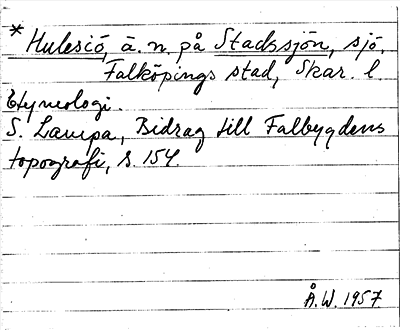 * Hulesiö, ä. n. på Stadssjön, sjö,
Falköpings stad, Skar. l.
Etymologi.
S. Lampa, Bidrag till Falbygdens
topografi, s. 154.
Å. W. 1957